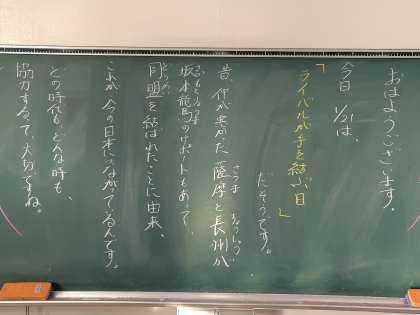 おはようございます。
今日 1/21は、
「ライバルが手を結ぶ日」
だそうです。
昔、仲が悪かった薩摩と長州が
さつま ちょうしゅう
坂本龍馬のサポートもあって、
さかもとりょうま
同盟を結ばれたことに由来。
どうめい
これが、今の日本につながってるんです。
どの時代も、どんな時も、
協力するって、大切ですね。